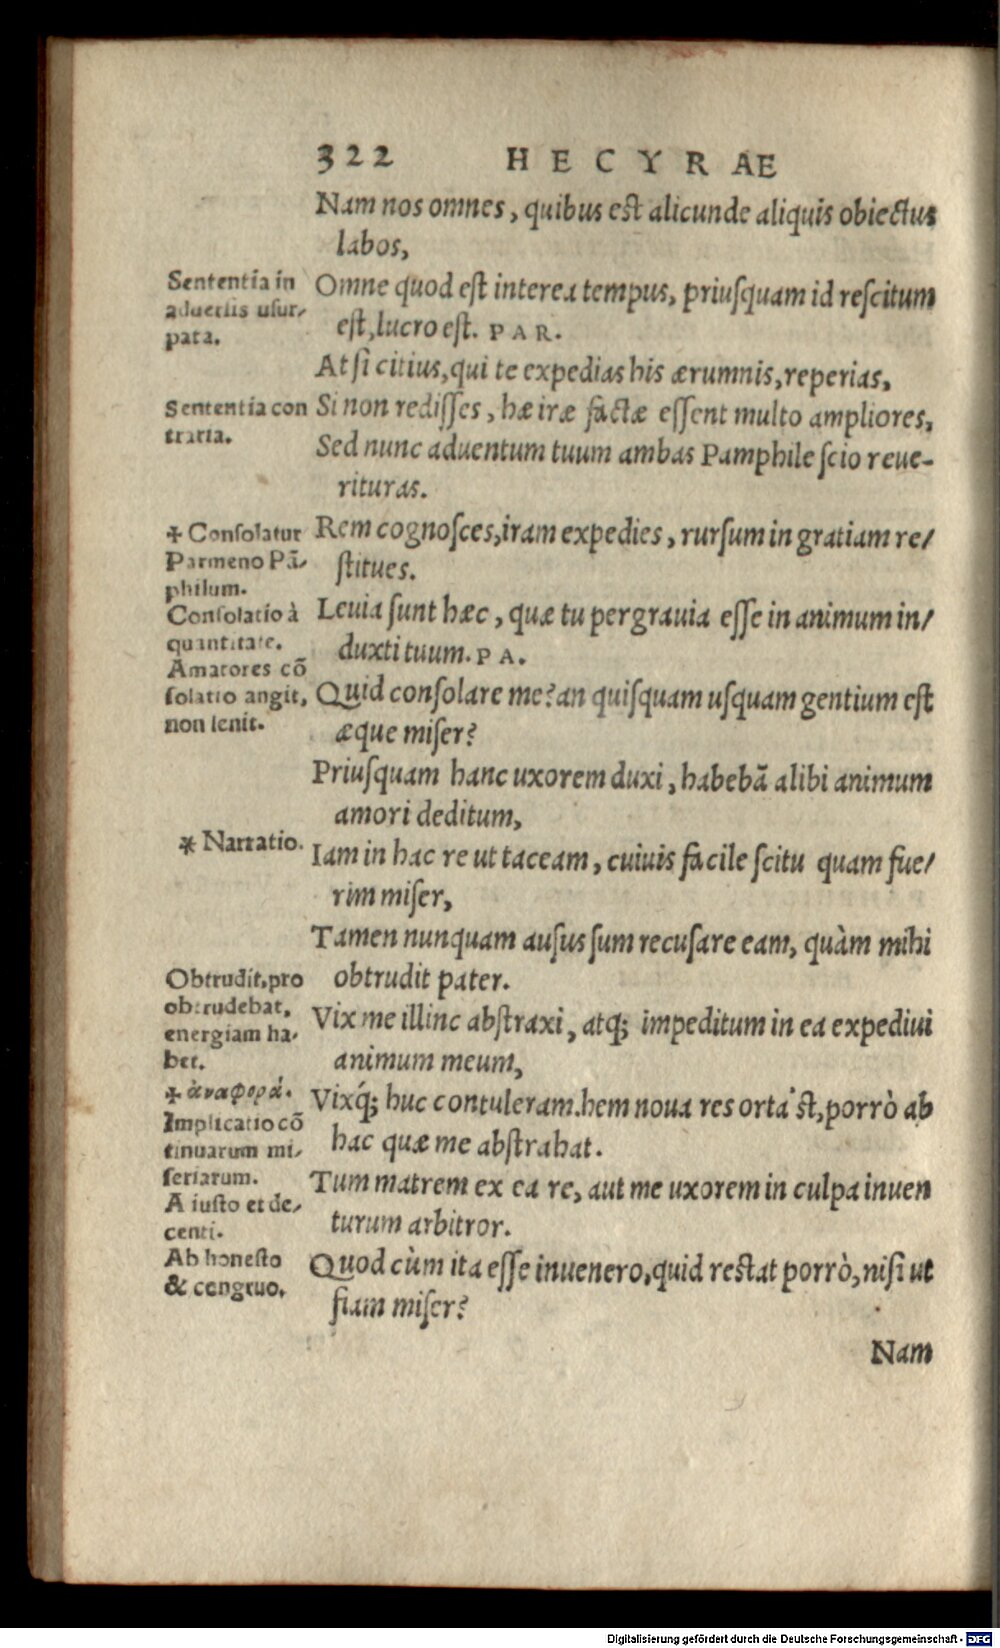 322 HECYRAE
Nam nos omnes, quibus est alicunde aliquis obiectus
labos,
Sententia in
aduersis usur-
pata.
Omne quod est interea tempus, priusquam id rescitum
est, lucro est. PAR.
At si citius, qui te expedias his ærumnis, reperias,
Sententia con
traria.
Si non redisses, hæ iræ factæ essent multo ampliores,
Sed nunc aduentum tuum ambas Pamphile scio reue-
rituras.
✢ Consolatur
Parmeno Pã-
philum.
Rem cognosces, iram expedies, rursum in gratiam re-
stitues.
Consolatio à
quantitate.
Leuia sunt hæc, quæ tu pergrauia esse in animum in-
duxti tuum. PA.
Amatores cõ
solatio angit,
non lenit.
Quid consolare me? an quisquam usquam gentium est
æque miser?
Priusquam hanc uxorem duxi, habebã alibi animum
amori deditum,
* Narratio.
Iam in hac re ut taceam, cuiuis facile scitu quam fue-
rim miser,
Tamen nunquam ausus sum recusare eam, quàm mihi
obtrudit pater.
Obtrudit, pro
obtrudebat,
energiam ha-
bet.
Vix me illinc abstraxi, atq; impeditum in ea expediui
animum meum,
✢ ἀναφορά.
Vixq́; huc contuleram. hem noua res orta'st, porrò ab
hac quæ me abstrahat.
Implicatio cõ
tinuarum mi-
seriarum.
Tum matrem ex ea re, aut me uxorem in culpa inuen
turum arbitror.
A iusto et de-
centi.
Ab honesto
& congruo.
Quod cùm ita esse inuenero, quid restat porrò, nisi ut
fiam miser?
Nam
Digitalisierung gefördert durch die Deutsche Forschungsgemeinschaft - DFG